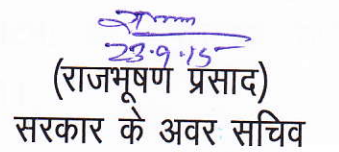 23.9.15
(राजभूषण प्रसाद)
सरकार के अवर सचिव